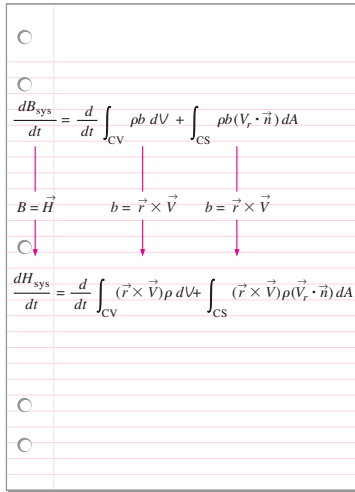 dB_sys/dt = d/dt ∫_CV ρb dV + ∫_CS ρb(V⃗_r · n⃗) dA
B = H⃗ b = r⃗ × V⃗ b = r⃗ × V⃗
dH_sys/dt = d/dt ∫_CV (r⃗ × V⃗)ρ dV + ∫_CS (r⃗ × V⃗)ρ(V⃗_r · n⃗) dA